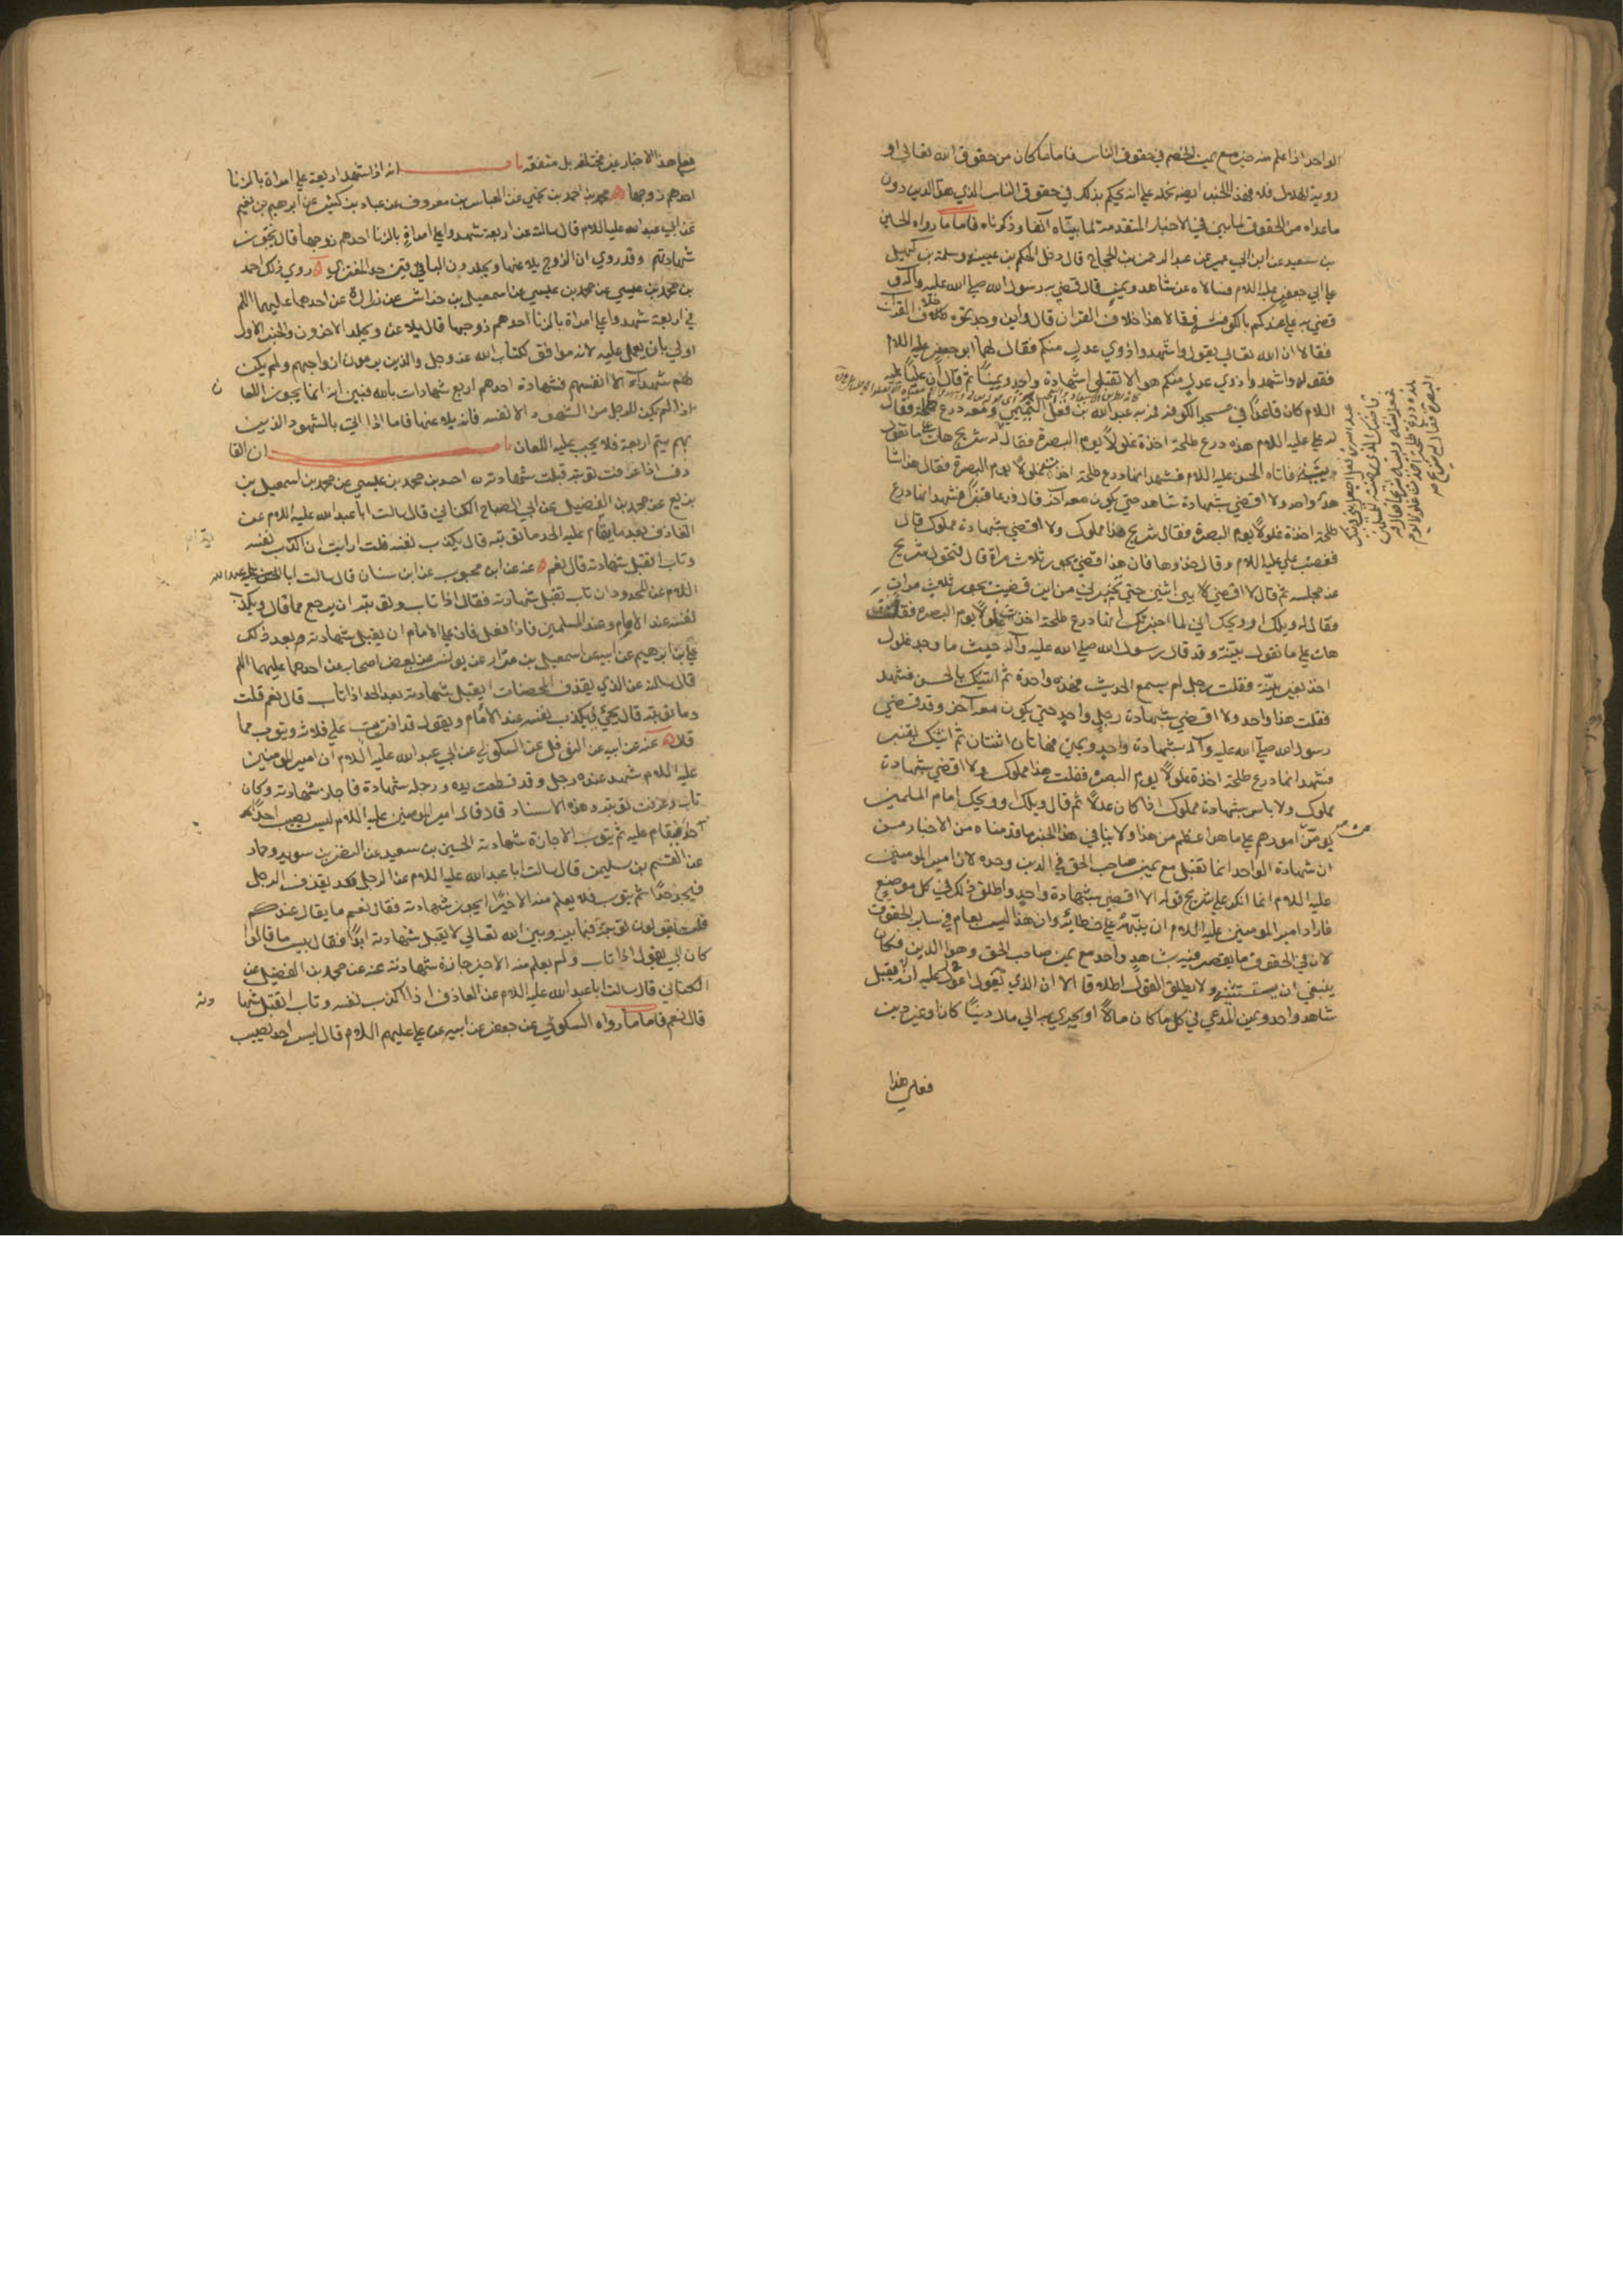 الواحد اذا علم منه خير مع يمين الخصم في حقوق الناس فاما ما كان من حقوق الله تعالى او
روية الهلال فلا فهذا الخبر ايضا نحمله على انه يحكم بذلك في حقوق الناس الذي هو الدين دون
ما عداه من الحقوق لما بين في الاخبار المتقدمة لما بيناه آنفا وذكرناه فاما ما رواه الحسين
بن سعيد عن ابن ابي عمير عن عبد الرحمن بن الحجاج قال دخل الحكم بن عيينه وسلمة بن كهيل
على ابي جعفر عليه السلام فسالاه عن شاهد ويمين قال قضى به رسول الله صلى الله عليه وآله و
قضى به علي عندكم بالكوفة فقالا هذا خلاف القران قال واين وجدتموه خلاف القران
فقالا ان الله تعالى يقول واشهدوا ذوي عدل منكم فقال لهما ابو جعفر عليه السلام
فقوله واشهدوا ذوي عدل منكم هو الا تقبلوا شهادة واحد ويمينا ثم قال ان عليا عليه
السلام كان قاعدا في مسجد الكوفه فمر به عبد الله بن قفل التميمي ومعه درع طلحة فقال
له علي عليه السلام هذه درع طلحة اخذة غلولا يوم البصرة فقال له شريح هات على ما تقول
بينة فاتاه الحسن عليه السلام فشهد انها درع طلحة اخذت غلولا يوم البصرة فقال هذا شا
هد واحد ولا اقضي بشهادة شاهد حتى يكون معه آخر قال فدعا قنبرا فشهد انها درع
طلحة اخذة غلولا يوم البصرة فقال شريح هذا مملوك ولا اقضي بشهادة مملوك قال
فغضب علي عليه السلام وقال خذوها فان هذا قضى بجور ثلاث مرات قال فتحول شريح
عن مجلسه ثم قال لا اقضي بين اثنين حتى تخبرني من اين قضيت بجور ثلث مرات
فقال له ويلك او ويحك اني لما اخبرتك انها درع طلحة اخذت غلولا يوم البصره فقلت
هات على ما تقول بينة وقد قال رسول الله صلى الله عليه وآله حيث ما وجد غلول
اخذ بغير بينة فقلت رجل لم يسمع الحديث فهذه واحدة ثم اتيتك بالحسن فشهد
فقلت هذا واحد ولا اقضي بشهادة رجل واحد حتى يكون معه آخر وقد قضى
رسول الله صلى الله عليه وآله بشهادة واحد ويمين فهاتان اثنتان ثم اتيتك بقنبر
فشهد انها درع طلحة اخذة غلولا يوم البصره فقلت هذا مملوك ولا اقضي بشهادة
مملوك ولا باس بشهادة مملوك اذا كان عدلا ثم قال ويلك او ويحك امام المسلمين
يومن امورهم على ما هو اعظم من هذا ولا ينافي هذا الخبر ما قدمناه من الاخبار من
ان شهادة الواحد انما تقبل مع يمين صاحب الحق في الدين وحده لان امير المومنين
عليه السلام انما انكر على شريح قوله لا اقضي بشهادة واحد واطلق ذلك في كل موضع
فاراد امير المومنين عليه السلام ان ينبهه على خطائه وان هذا ليس بعام في ساير الحقوق
لان في الحقوق ما يقضى فيه بشاهد واحد مع يمين صاحب الحق وهو الدين فكان
ينبغي ان يستثنيه ولا يطلق القول اطلاقا الا ان الذي نقول نحن عليه ان يقبل
شاهد واحد ويمين المدعي في كل ما كان مالا او يجري مجرى مالا دينا كان او غير دين
فعلى هذا
فعلى هذا الاخبار غير مختلفه بل متفقه باب انه اذا شهد اربعة على امراة بالزنا
احدهم زوجها محمد بن احمد بن يحيى عن العباس بن معروف عن عباد بن كثير عن ابرهيم بن نعيم
عن ابي عبد الله عليه السلام قال سالته عن اربعة شهدوا على امراة بالزنا احدهم زوجها قال تجوز
شهادتهم وقد روي ان الزوج يلاعنها ويجلدون الباقين حد المفتري روي ذلك احمد
بن محمد بن عيسى عن محمد بن عيسى عن اسمعيل بن خداش عن زرارة عن احدهما عليهما السلم
في اربعة شهدوا على امراة بالزنا احدهم زوجها قال يلاعن ويجلد الاخرون والخبر الاول
اولى بان يعمل عليه لانه موافق لكتاب الله عز وجل والذين يرمون ازواجهم ولم يكن
لهم شهداء الا انفسهم فشهادة احدهم اربع شهادات بالله فبين انه انما يجوز اللعا ن
اذا لم يكن للرجل من الشهود الا نفسه فانه يلاعنها فاما اذا اتى بالشهود الذين
بهم يتم اربعة فلا يجب عليه اللعان باب ان القا
ذف اذا عرفت توبته قبلت شهادته احمد بن محمد بن عيسى عن محمد بن اسمعيل بن
بزيع عن محمد بن الفضيل عن ابي الصباح الكناني قال سالت ابا عبد الله عليه السلام عن
القاذف بعد ما يقام عليه الحد ما توبته قال يكذب نفسه قلت ارايت ان اكذب نفسه
وتاب اتقبل شهادته قال نعم عنه عن ابن محبوب عن ابن سنان قال سالت ابا عبد الله عليه
السلام عن المحدود ان تاب تقبل شهادته فقال اذا تاب وتوبته ان يرجع مما قال ويكذب
نفسه عند الامام وعند المسلمين فاذا فعل فان على الامام ان يقبل شهادته بعد ذلك
علي بن ابرهيم عن ابيه عن اسمعيل بن مرار عن يونس عن بعض اصحابه عن احدهما عليهما السلم
قال سالته عن الذي يقذف المحصنات ايقبل شهادته بعد الحد اذا تاب قال نعم قلت
وما توبته قال يجئ فيكذب نفسه عند الامام ويقول قد افتريت على فلانة ويتوب مما
قال عنه عن ابيه عن النوفلي عن السكوني عن ابي عبد الله عليه السلام ان امير المومنين
عليه السلام شهد عنده رجل وقد قطعت يده ورجله شهادة فاجاز شهادته وكان
تاب وعرفت توبته وبهذا الاسناد قال قال امير المومنين عليه السلام ليس يصيب احد
حدا فيقام عليه ثم يتوب الا جازة شهادته الحسين بن سعيد عن النضر بن سويد وحماد
عن القسم بن سليمن قال سالت ابا عبد الله عليه السلام عن الرجل يقذف الرجل
فيجلد حدا ثم يتوب فلا يعلم منه الا خيرا ايجوز شهادته فقال نعم ما يقال عندكم
قلت يقولون توبته فيما بينه وبين الله تعالى لا يقبل شهادته ابدا فقال بيس ما قالوا
كان ابي يقول اذا تاب ولم يعلم منه الا خير جازة شهادته عنه عن محمد بن الفضيل عن
الكناني قال سالت ابا عبد الله عليه السلام عن القاذف اذا اكذب نفسه وتاب اتقبل شها دته
قال نعم فاما ما رواه السكوني عن جعفر عن ابيه عن علي عليهم السلام قال ليس احد يصيب